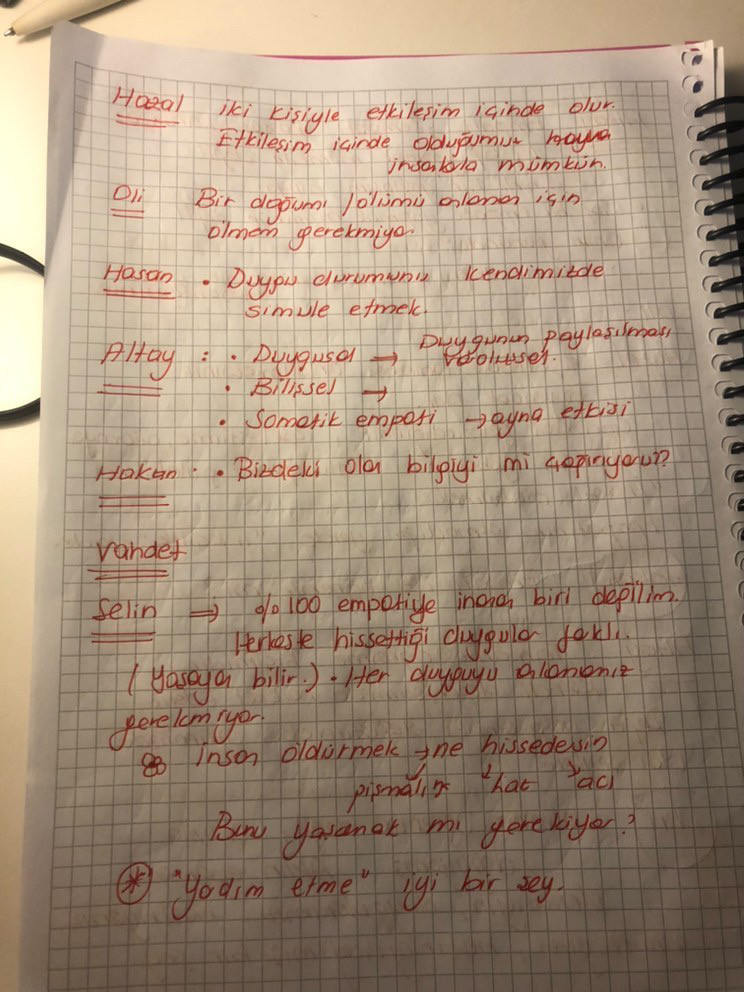 Hazal iki kişiyle etkileşim içinde olur.
Etkileşim içinde olduğumuz
insanla mümkün.
Oli Bir doğumu / ölümü anlaman için
ölmen gerekmiyo.
Hasan • Duygu durumunu kendimizde
simule etmek.
Altay : • Duygusal → Duygunun paylaşılması
• Bilişsel →
• Somatik empati → ayna etkisi
Hakan • Bizdeki olan bilgiyi mi
Vahdet
Selin ⇒ %100 empatiye inanan biri değilim.
Herkeste hissettiği duygular farklı.
(Yaşayan bilir.) • Her duyguyu anlamanız
gerekmiyor.
insan öldürmek → ne hissedersin
pişmanlık acı
Bunu yaşamak mı gerekiyor?
* "Yardım etme" iyi bir şey.